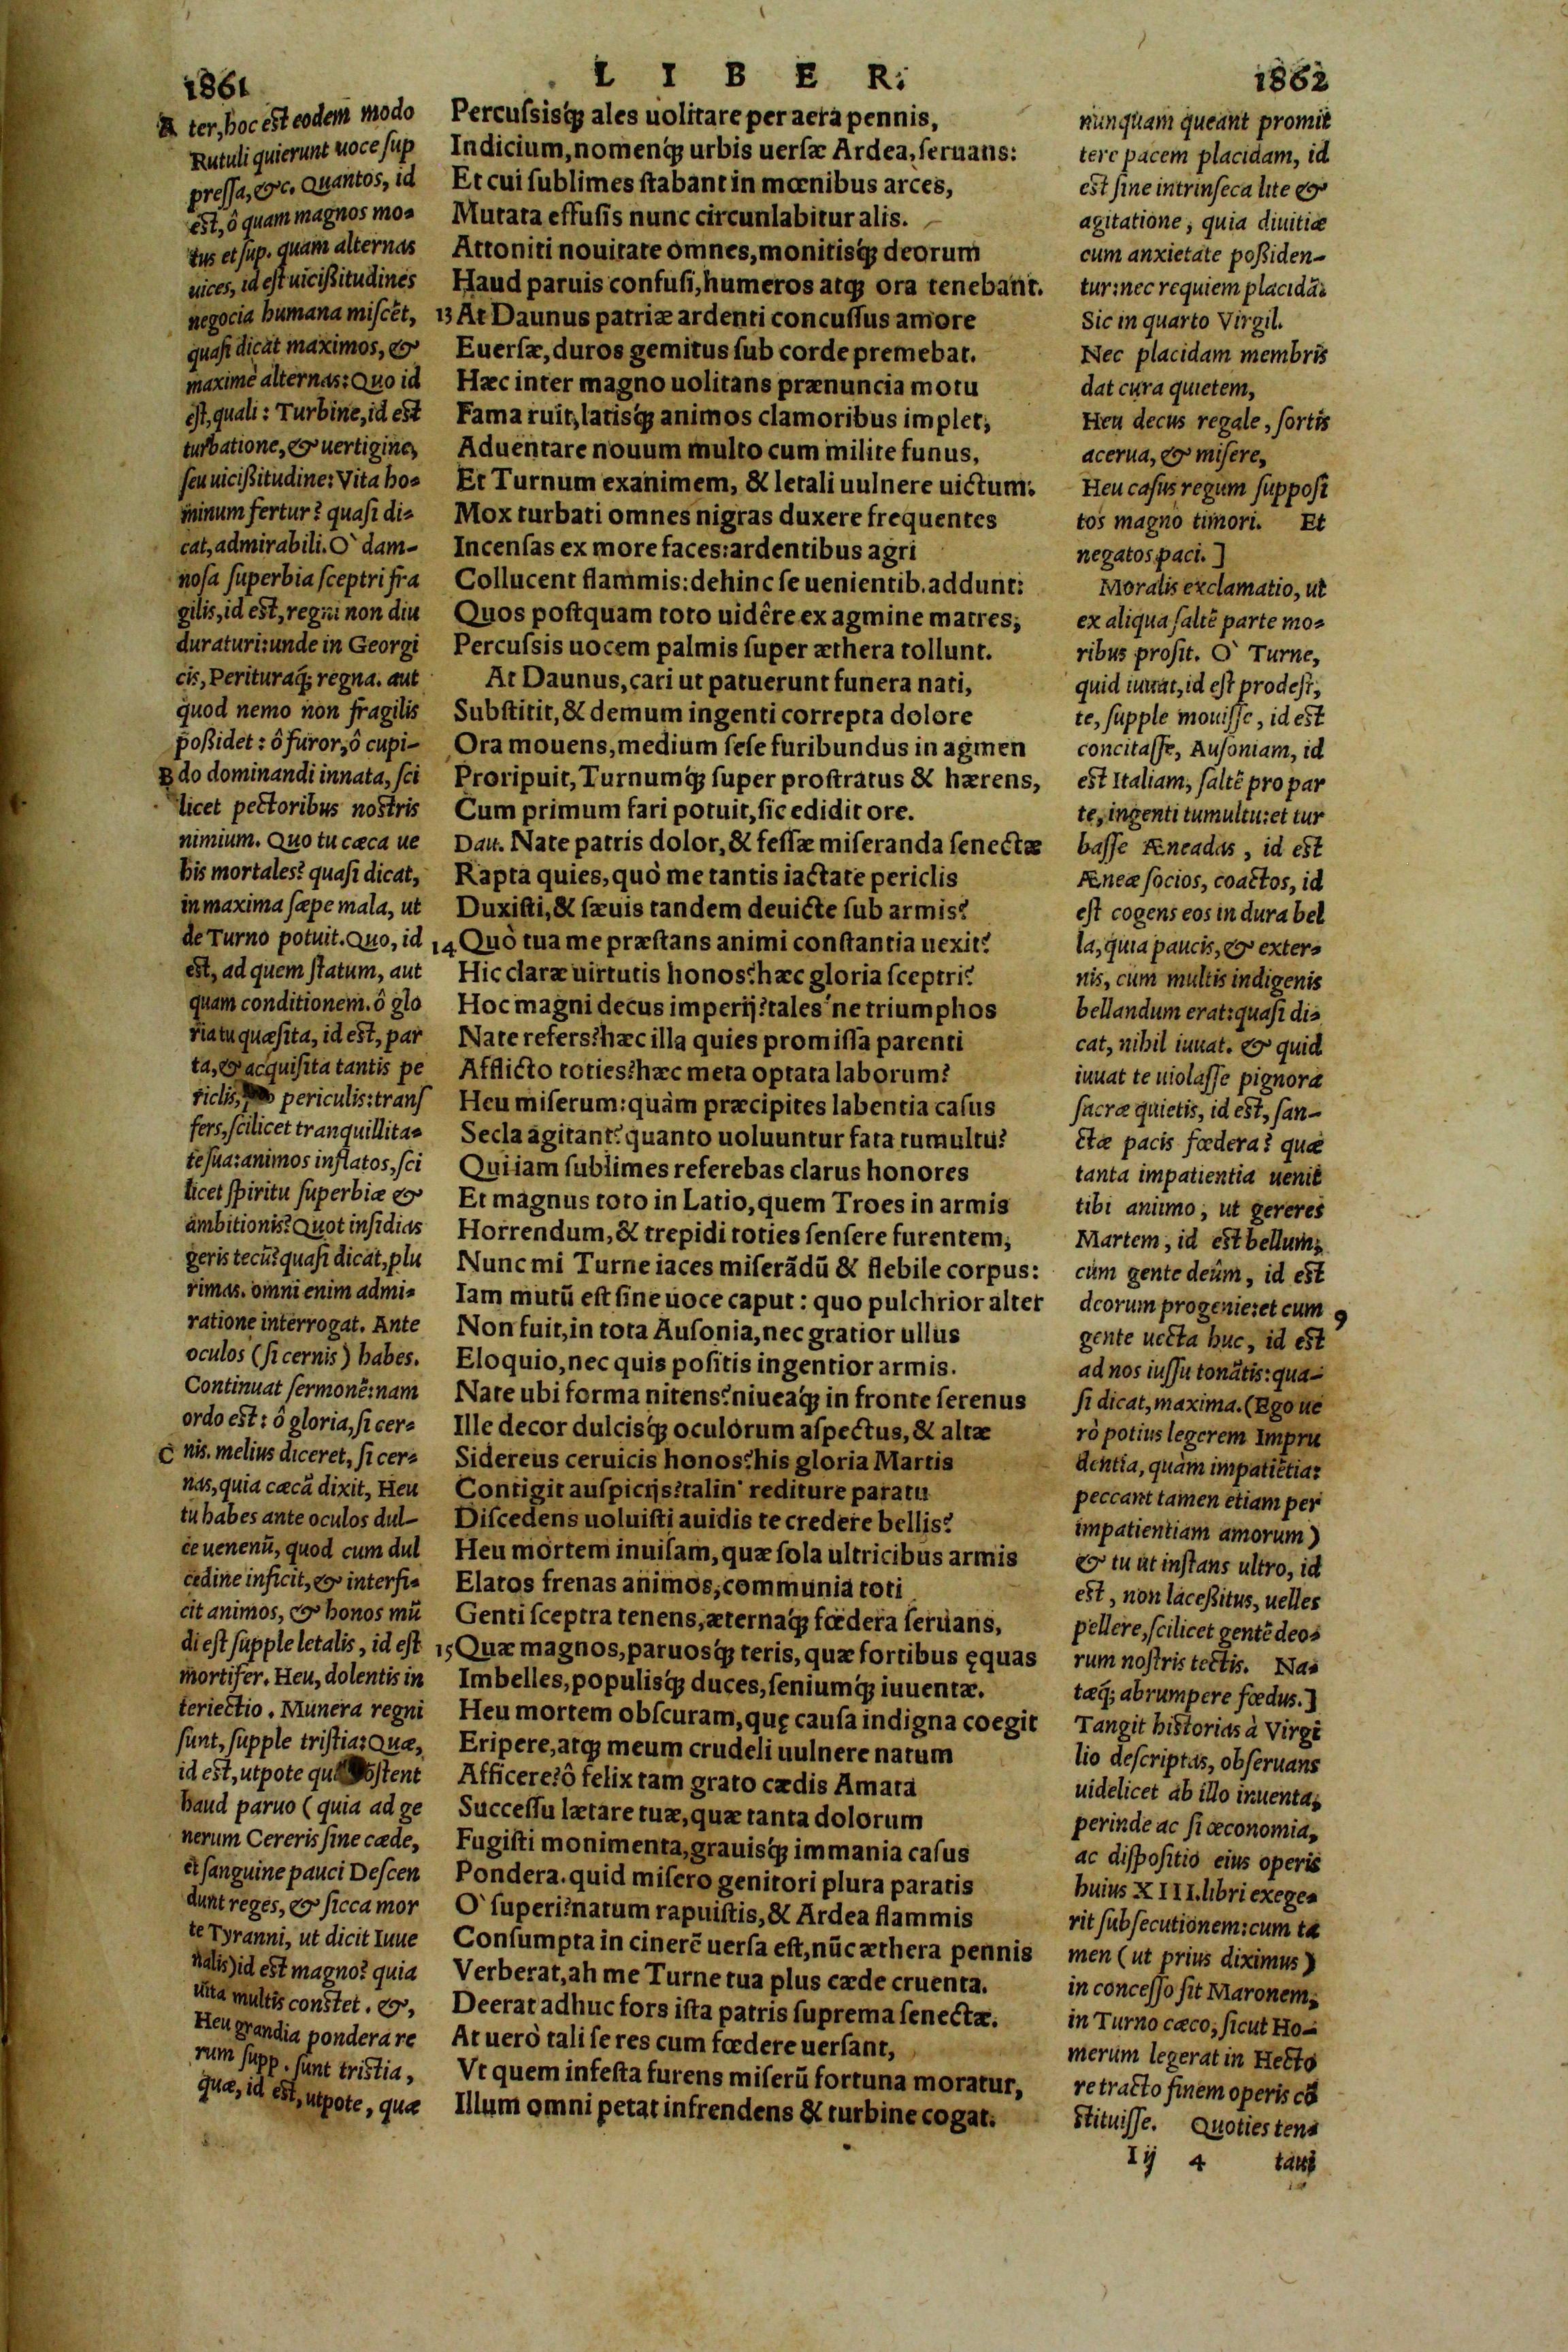 1861
L I B E R.
1862
A ter, hoc est eodem modo
Rutuli quierunt uoce sup
pressa, &c. Quantos, id
est, ô quam magnos mo-
tus et sup. quam alternas
uices, id est uicißitudines
negocia humana miscēt,
quasi dicat maximos, &
maximè alternas: Quo id
est, quali: Turbine, id est
turbatione, & uertigine,
seu uicißitudine: Vita ho-
minum fertur? quasi di-
cat, admirabili. O` dam-
nosa superbia sceptri fra
gilis, id est, regni non diu
duraturi: unde in Georgi
cis, Perituraq́; regna. aut
quod nemo non fragilis
poßidet: ô furor, ô cupi-
B do dominandi innata, sci
licet pectoribus nostris
nimium. Quo tu cæca ue
his mortales? quasi dicat,
in maxima sæpe mala, ut
de Turno potuit. Quo, id
est, ad quem statum, aut
quam conditionem. ô glo
ria tu quæsita, id est, par
ta, & acquisita tantis pe
riclis, periculis: trans
fers, scilicet tranquillita-
te sua: animos inflatos, sci
licet spiritu superbiæ &
ambitionis? Quot insidias
geris tecū? quasi dicat, plu
rimas. omni enim admi-
ratione interrogat. Ante
oculos (si cernis) habes.
Continuat sermonē: nam
ordo est: ô gloria, si cer-
C nis. melius diceret, si cer-
nas, quia cæcā dixit, Heu
tu habes ante oculos dul-
ce uenenū, quod cum dul
cedine inficit, & interfi-
cit animos, & honos mū
di est supple letalis, id est
mortifer. Heu, dolentis in
teriectio. Munera regni
sunt, supple tristia: Quæ,
id est, utpote qu ostent
haud paruo (quia ad ge
nerum Cereris sine cæde,
et sanguine pauci Descen
dunt reges, & sicca mor
te Tyranni, ut dicit Iuue
nalis) id est magno? quia
uita multis constet. &,
Heu grandia pondera re
rum supp. sunt tristia,
quæ, id est, utpote, quæ
Percussisq́; ales uolitare per aera pennis,
Indicium, nomenq́; urbis uersæ Ardea, seruans:
Et cui sublimes stabant in mœnibus arces,
Mutata effusis nunc circunlabitur alis.
Attoniti nouitate omnes, monitisq́; deorum
Haud paruis confusi, humeros atq; ora tenebant.
13 At Daunus patriæ ardenti concussus amore
Euersæ, duros gemitus sub corde premebat.
Hæc inter magno uolitans prænuncia motu
Fama ruit, latisq́; animos clamoribus implet,
Aduentare nouum multo cum milite funus,
Et Turnum exanimem, & letali uulnere uictum.
Mox turbati omnes nigras duxere frequentes
Incensas ex more faces: ardentibus agri
Collucent flammis: dehinc se uenientib. addunt:
Quos postquam toto uidêre ex agmine matres,
Percussis uocem palmis super æthera tollunt.
At Daunus, cari ut patuerunt funera nati,
Substitit, & demum ingenti correpta dolore
Ora mouens, medium sese furibundus in agmen
Proripuit, Turnumq́; super prostratus & hærens,
Cum primum fari potuit, sic edidit ore.
Dau. Nate patris dolor, & fessæ miseranda senectæ
Rapta quies, quò me tantis iactate periclis
Duxisti, & sæuis tandem deuicte sub armis?
14 Quò tua me præstans animi constantia uexit?
Hic claræ uirtutis honos? hæc gloria sceptri?
Hoc magni decus imperij? tales'ne triumphos
Nate refers? hæc illa quies promissa parenti
Afflicto toties? hæc meta optata laborum?
Heu miserum: quàm præcipites labentia casus
Secla agitant? quanto uoluuntur fata tumultu?
Qui iam sublimes referebas clarus honores
Et magnus toto in Latio, quem Troes in armis
Horrendum, & trepidi toties sensere furentem,
Nunc mi Turne iaces miserādū & flebile corpus:
Iam mutū est sine uoce caput: quo pulchrior alter
Non fuit, in tota Ausonia, nec gratior ullus
Eloquio, nec quis positis ingentior armis.
Nate ubi forma nitens? niueaq́; in fronte serenus
Ille decor dulcisq́; oculorum aspectus, & altæ
Sidereus ceruicis honos? his gloria Martis
Contigit auspicijs? talin' rediture paratu
Discedens uoluisti auidis te credere bellis?
Heu mortem inuisam, quæ sola ultricibus armis
Elatos frenas animos, communia toti
Genti sceptra tenens, æternaq́; fœdera seruans,
15 Quæ magnos, paruosq́; teris, quæ fortibus ęquas
Imbelles, populisq́; duces, seniumq́; iuuentæ.
Heu mortem obscuram, quę causa indigna coegit
Eripere, atq; meum crudeli uulnere natum
Afficere? ô felix tam grato cædis Amata
Successu lætare tuæ, quæ tanta dolorum
Fugisti monimenta, grauisq́; immania casus
Pondera. quid misero genitori plura paratis
O` superi? natum rapuistis, & Ardea flammis
Consumpta in cinerē uersa est, nūc æthera pennis
Verberat, ah me Turne tua plus cæde cruenta.
Deerat adhuc fors ista patris suprema senectæ.
At uerò tali se res cum fœdere uersant,
Vt quem infesta furens miserū fortuna moratur,
Illum omni petat infrendens & turbine cogat.
nunquam queant promit
tere pacem placidam, id
est sine intrinseca lite &
agitatione, quia diuitiæ
cum anxietate poßiden-
tur: nec requiem placidā:
Sic in quarto Virgil.
Nec placidam membris
dat cura quietem,
Heu decus regale, sortis
acerua, & misere,
Heu casus regum supposi
tos magno timori. Et
negatos paci.]
Moralis exclamatio, ut
ex aliqua saltē parte mo-
ribus prosit. O` Turne,
quid iuuat, id est prodest,
te, supple mouisse, id est
concitasse, Ausoniam, id
est Italiam, saltē pro par
te, ingenti tumultu: et tur
basse Æneadas, id est
Æneæ socios, coactos, id
est cogens eos in dura bel
la, quia paucis, & exter-
nis, cum multis indigenis
bellandum erat: quasi di-
cat, nihil iuuat. & quid
iuuat te uiolasse pignora
sacræ quietis, id est, san-
ctæ pacis fœdera? quæ
tanta impatientia uenit
tibi animo, ut gereres
Martem, id est bellum,
cum gente deûm, id est
deorum progenie: et cum 9
gente uecta huc, id est
ad nos iussu tonātis: qua-
si dicat, maxima. (Ego ue
rò potius legerem Impru
dentia, quàm impatiētia:
peccant tamen etiam per
impatientiam amorum)
& tu ut instans ultro, id
est, non laceßitus, uelles
pellere, scilicet gentē deo-
rum nostris tectis. Na-
tæq́; abrumpere fœdus.]
Tangit historias à Virgi
lio descriptas, obseruans
uidelicet ab illo inuenta,
perinde ac si œconomia,
ac dispositio eius operis
huius XIII. libri exege-
rit subsecutionem: cum ta
men (ut prius diximus)
in concesso sit Maronem,
in Turno cæco, sicut Ho-
merum legerat in Hecto
re tracto finem operis cō
stituisse. Quoties ten-
Iij 4 taui